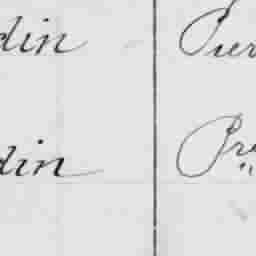 din Pier
din Pre
"